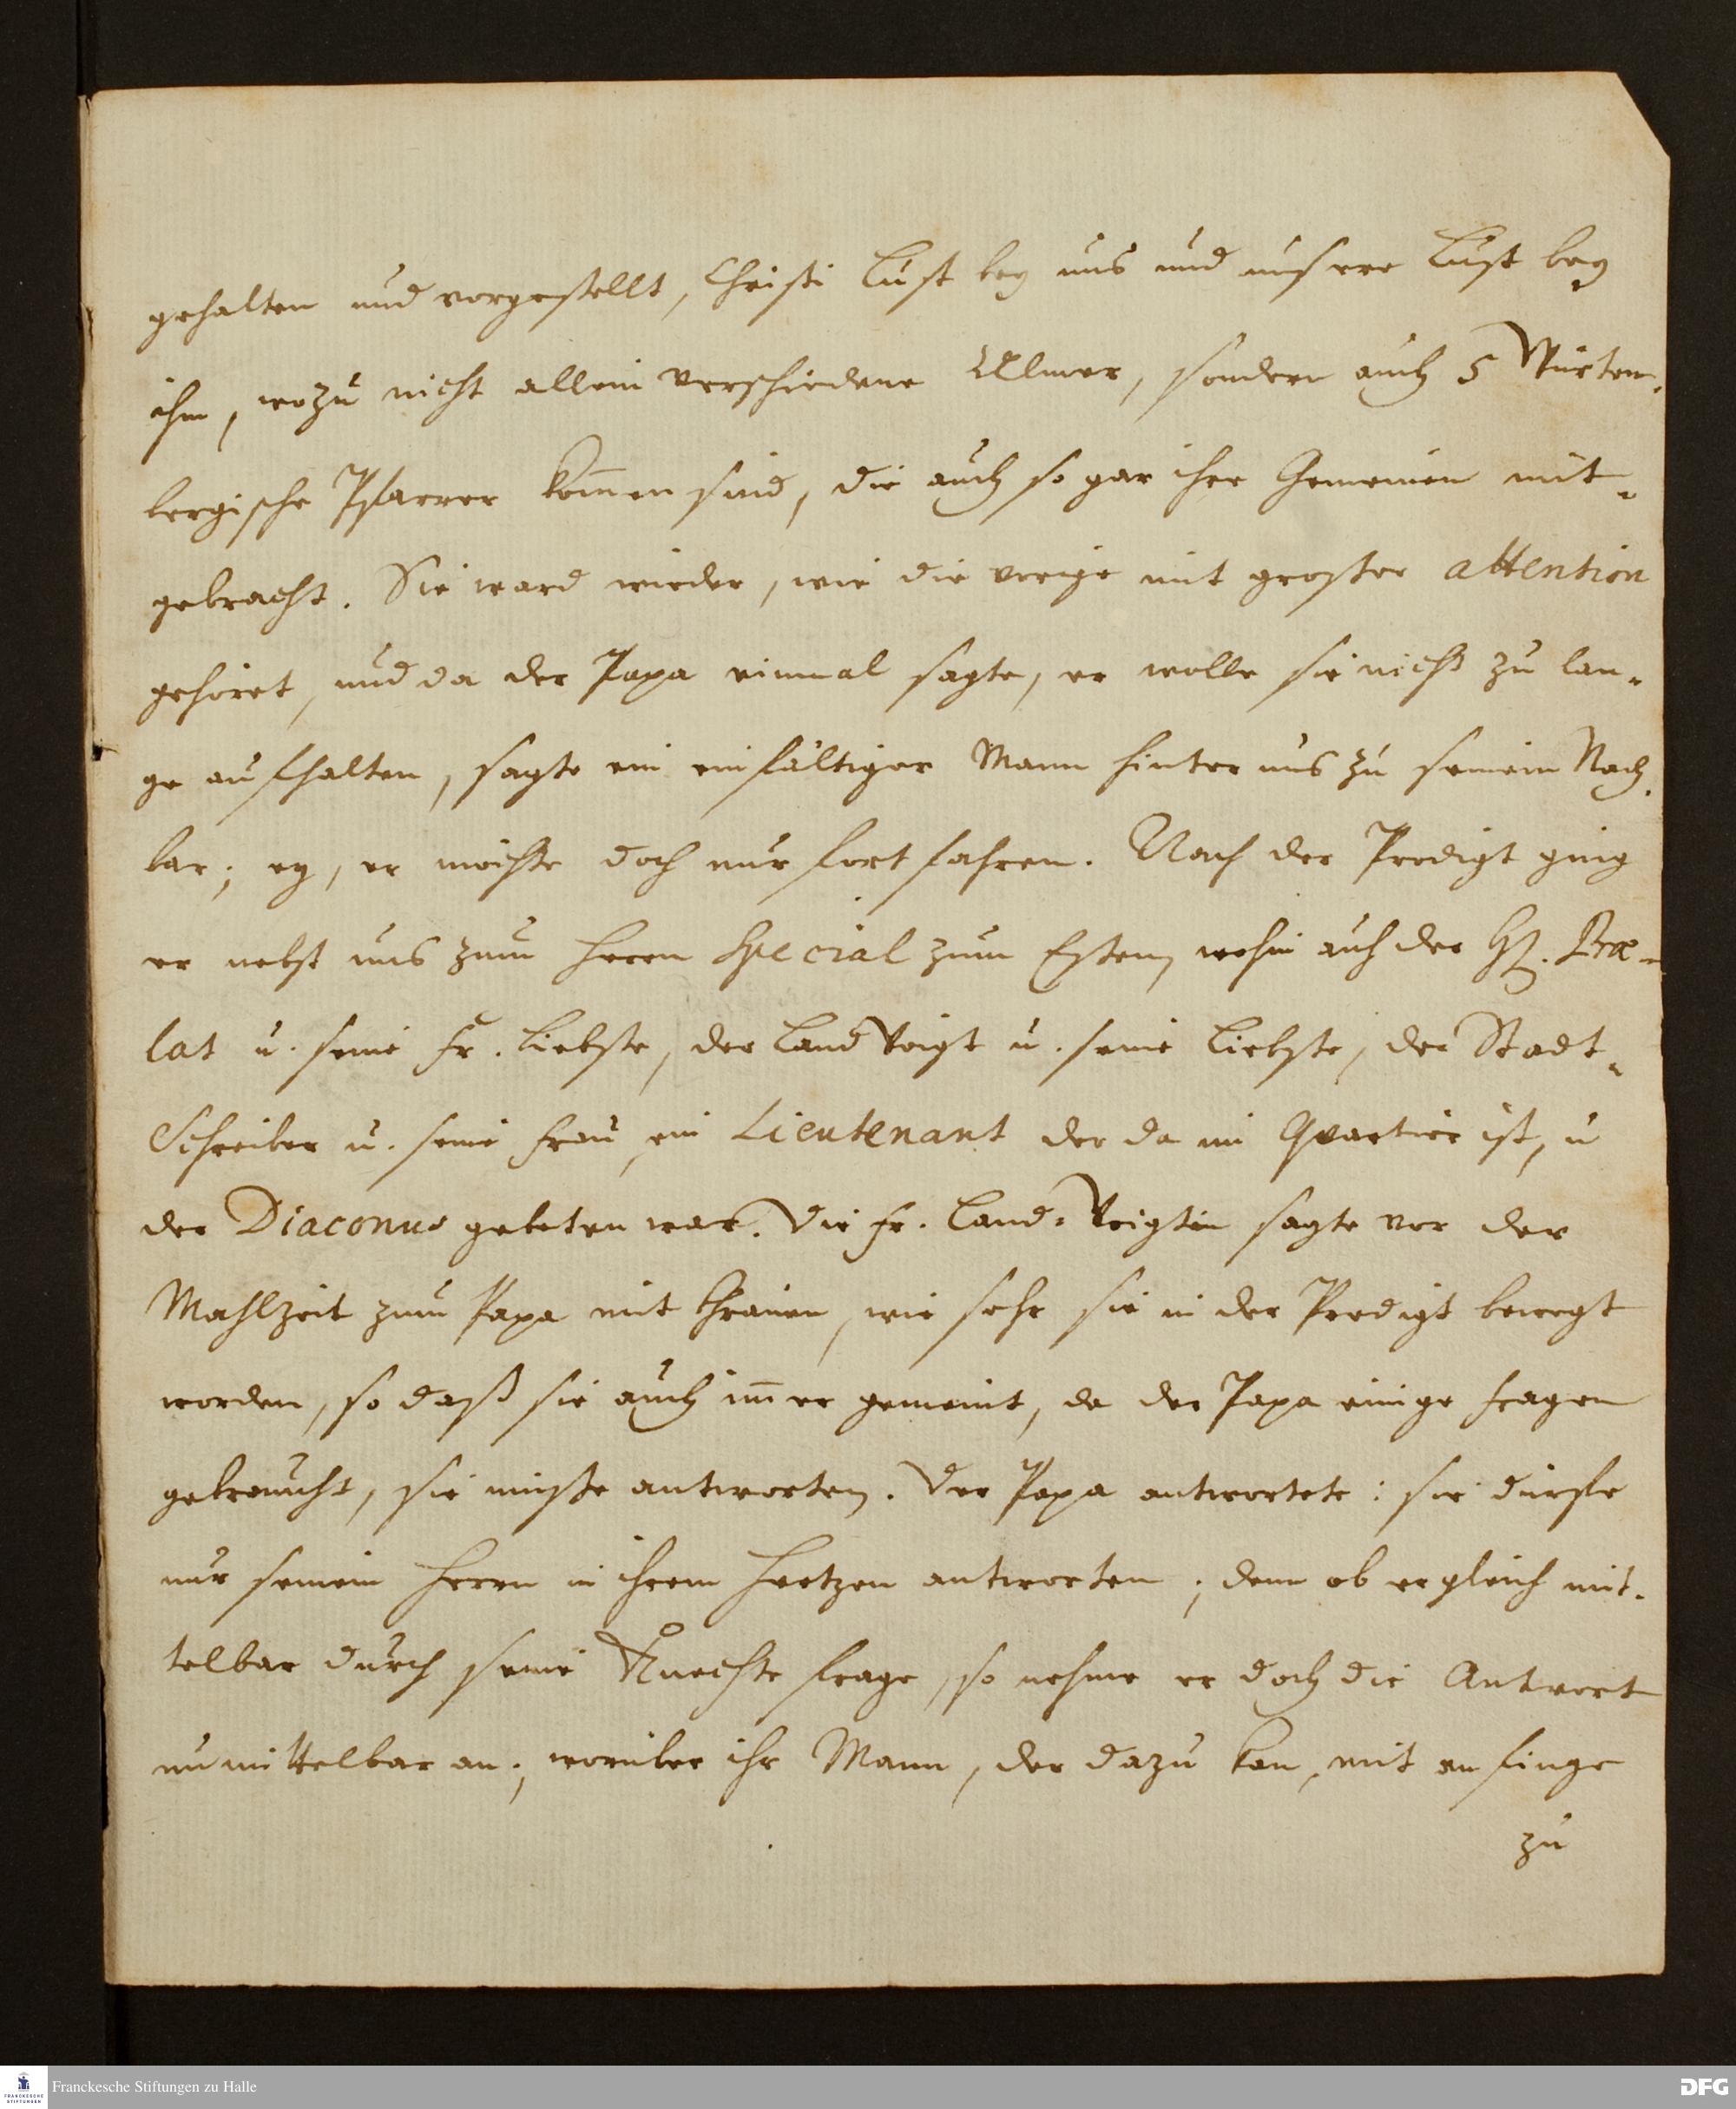 gehalten und vorgestellt, Christi Lust bey uns und unsere Lust bey
ihm, wozu nicht allein verschiedene Ulmer, sondern auch 5 Würten-
bergische Pfarrer kom̄en sind, die auch so gar ihre Gemeinen mit-
gebracht. Sie ward wieder, wie die vorige mit groster attention
gehöret, und da der Papa einmal sagte, er wolle sie nicht zu lan-
ge aufhalten, sagte ein einfältiger Mann hinter uns zu seinem Nach-
bar; ey, er möchte doch nur fort fahren. Nach der Predigt ging
er nebst uns zum Herrn Special zum Essen, wohin auch der H. Præ-
lat u. seine Fr. Liebste, der Land Voigt u. seine Liebste, der Stadt-
Schreiber u. seine Frau, ein Lieutenant der da im Quartier ist, u
der Diaconus gebeten war. Die Fr. Land-Voigtin sagte vor der
Mahlzeit zum Papa mit thränen, wie sehr sie in der Predigt bewegt
worden, so daß sie auch im̄er gemeint, da der Papa einige Fragen
gebraucht, sie müste antworten. Der Papa antwortete: sie dürfe
nur seinem Herrn in ihrem Hertzen antworten; denn ob er gleich mit-
telbar durch seine Knechte frage, so nehme er doch die Antwort
unmittelbar an; worüber ihr Mann, der dazu kam, mit anfinge
zu
Franckesche Stiftungen zu Halle
FRANCKESCHE
STIFTUNGEN
DFG